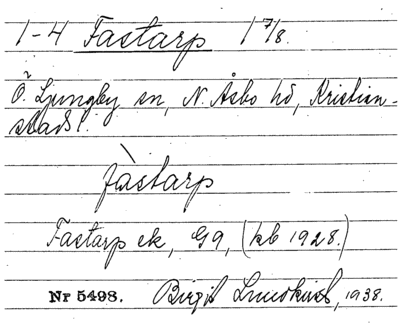 1-4 Fastarp 1 7/8.
Ö. Ljungby sn, N. Åsbo hd, Kristian-
stads l.
fàstarp
Fastarp ek, G9, (kb 1928.)
Nr 5498. Birgit Lundkvist, 1938.